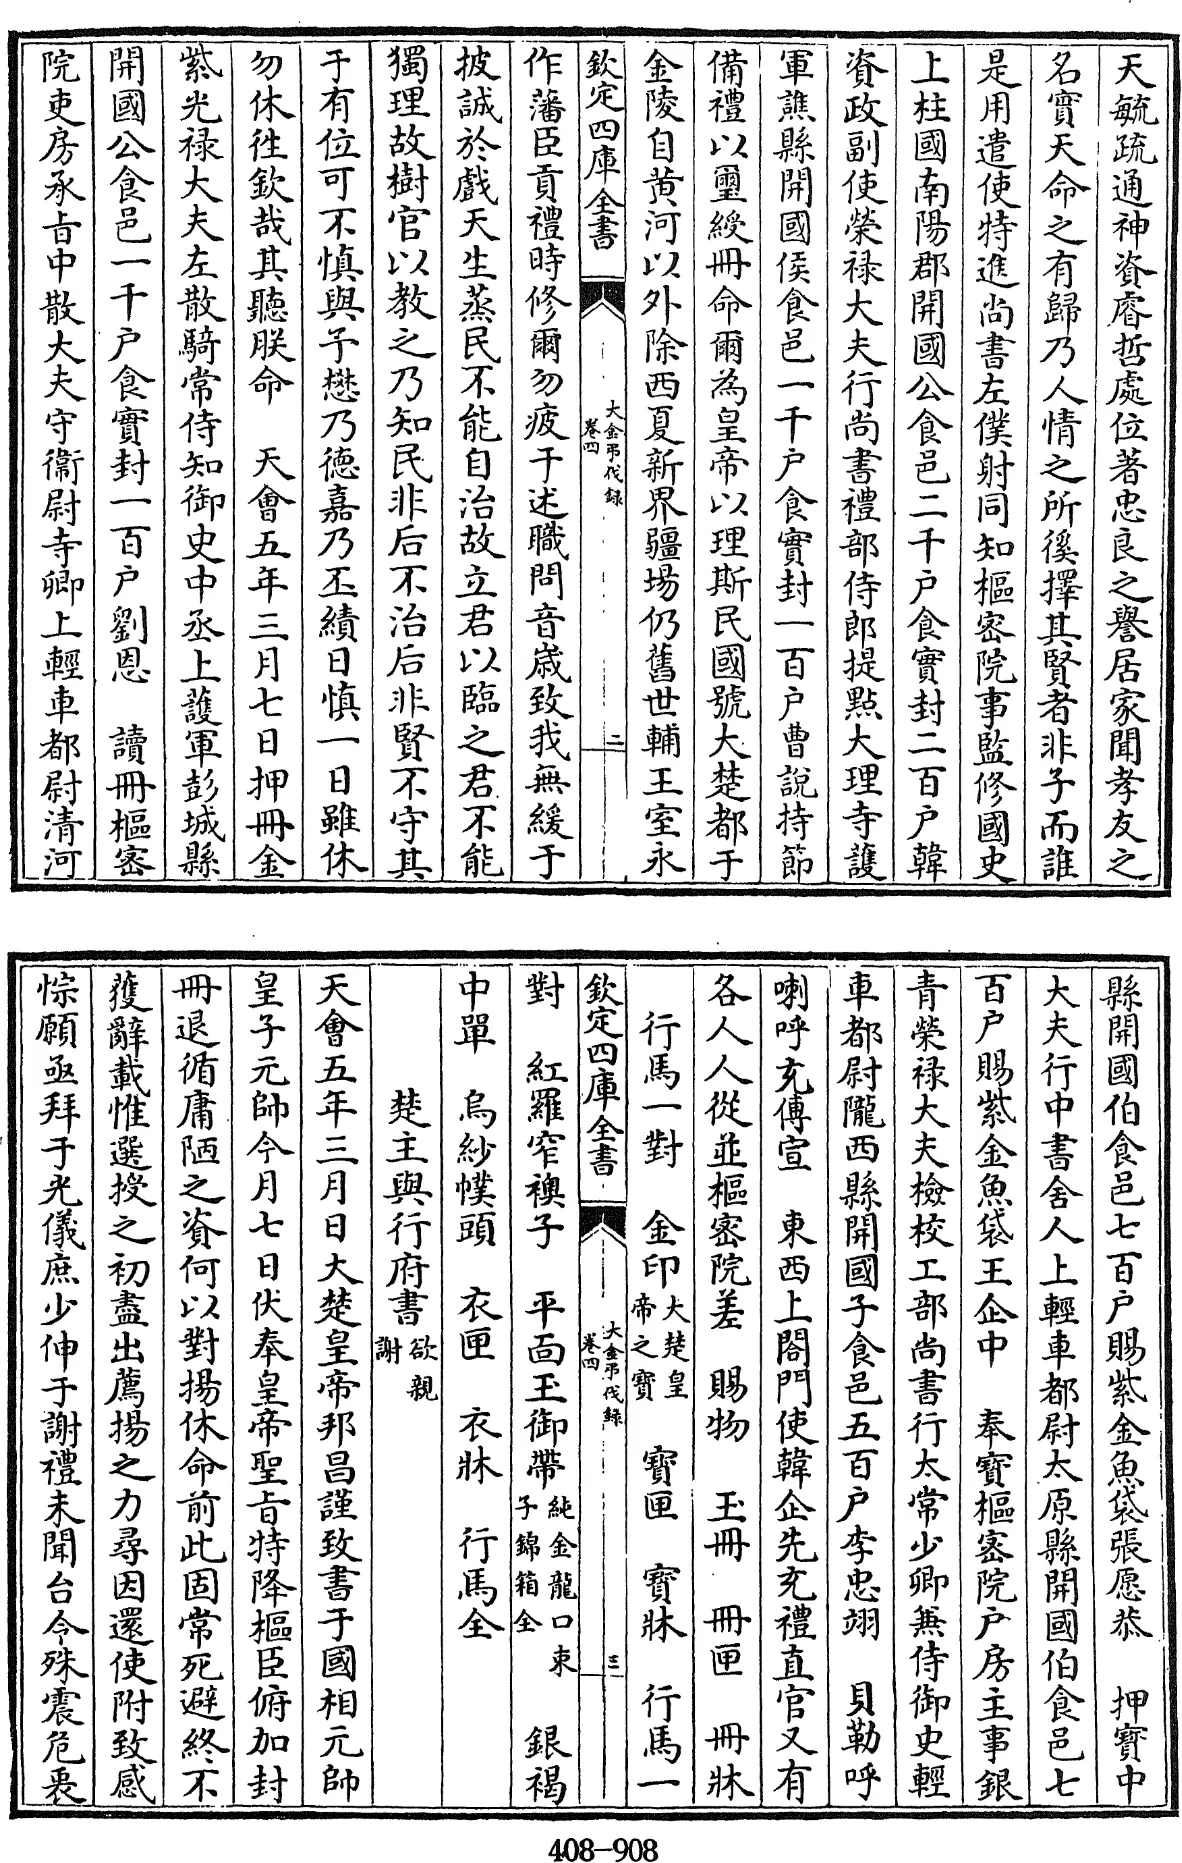 天毓疏通神資睿哲處位著忠良之譽居家聞孝友之
名實天命之有歸乃人情之所徯擇其賢者非子而誰
是用遣使特進尚書左僕射同知樞密院事監修國史
上柱國南陽郡開國公食邑二千户食實封二百户韓
資政副使榮禄大夫行尚書禮部侍郎提點大理寺護
軍譙縣開國侯食邑一千户食實封一百户曹說持節
備禮以璽綬冊命爾為皇帝以理斯民國號大楚都于
金陵自黄河以外除西夏新界疆場仍舊世輔王室永
欽定四庫全書
大金弔伐録
卷四
二
作藩臣貢禮時修爾勿疲于述職問音嵗致我無緩于
披誠於戲天生蒸民不能自治故立君以臨之君不能
獨理故樹官以教之乃知民非后不治后非賢不守其
于有位可不慎與予懋乃德嘉乃丕績日慎一日雖休
勿休徃欽哉其聽朕命　天會五年三月七日押冊金
紫光禄大夫左散騎常侍知御史中丞上護軍彭城縣
開國公食邑一千户食實封一百户劉恩　讀冊樞密
院吏房承㫖中散大夫守衞尉寺卿上輕車都尉清河
縣開國伯食邑七百户賜紫金魚袋張愿恭　押寳中
大夫行中書舍人上輕車都尉太原縣開國伯食邑七
百户賜紫金魚袋王企中　奉寳樞密院户房主事銀
青榮禄大夫檢校工部尚書行太常少卿兼侍御史輕
車都尉隴西縣開國子食邑五百户李忠翊　貝勒呼
喇呼充傅宣　東西上閤門使韓企先充禮直官又有
各人人從並樞密院差　賜物　玉冊　冊匣　冊牀
行馬一對　金印大楚皇帝之寳　寳匣　寳牀　行馬一
欽定四庫全書
大金弔伐録
卷四
三
對　紅羅窄襖子　平面玉御帶純金龍口束子錦箱全　銀褐
中單　烏紗幞頭　衣匣　衣牀　行馬全
楚主與行府書欲親謝
天會五年三月日大楚皇帝邦昌謹致書于國相元帥
皇子元帥今月七日伏奉皇帝聖㫖特降樞臣俯加封
冊退循庸陋之資何以對揚休命前此固常死避終不
獲辭載惟選授之初盡出薦揚之力尋因還使附致感
悰願亟拜于光儀庶少伸于謝禮未聞台令殊震危喪
408-908